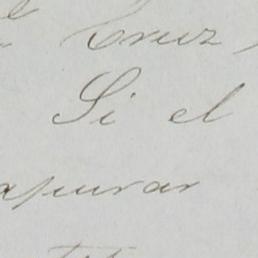 Cruz
Si el
apurar